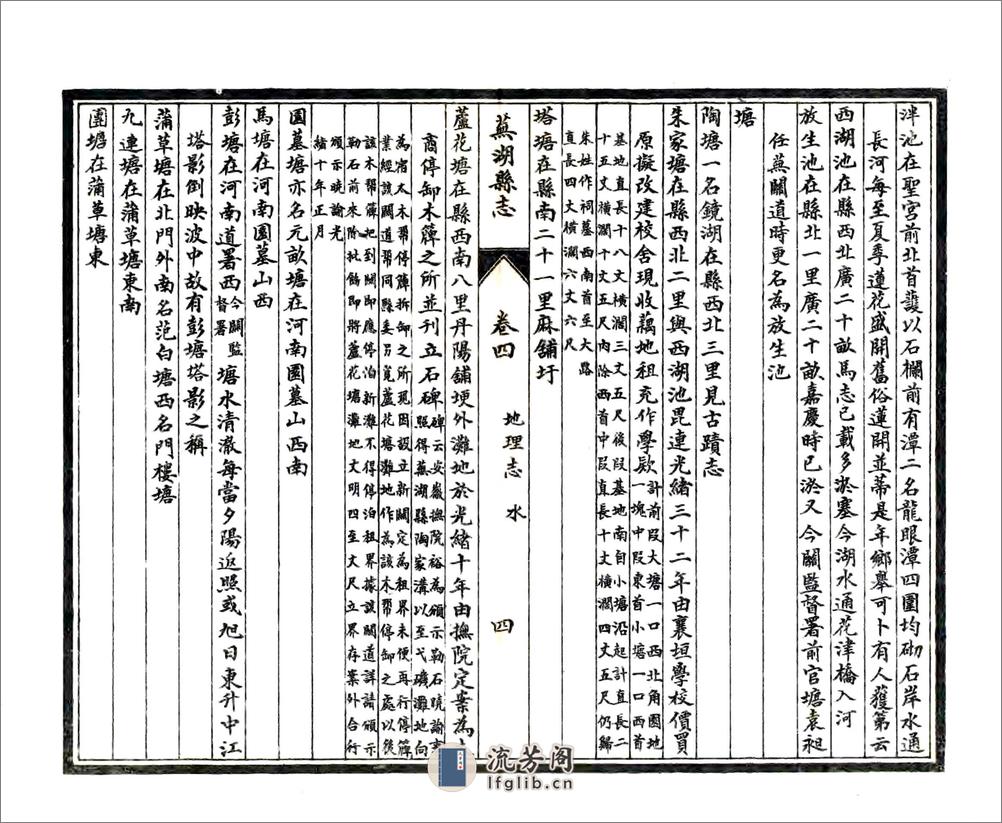 泮池在聖宮前北首護以石欄前有潭二名龍眼潭四圍均砌石岸水通
長河每至夏季蓮花盛開舊俗蓮開並蒂是年鄉舉可卜有人獲第云
西湖池在縣西北廣二十畝馬志已載多淤塞今湖水通花津橋入河
放生池在縣北一里廣二十畝嘉慶時已淤又今關監督署前官塘袁昶
任蕪關道時更名為放生池
塘
陶塘一名鏡湖在縣西北三里見古蹟志
朱家塘在縣西北二里與西湖池毘連光緒三十二年由襄垣學校價買
原擬改建校舍現收藕地租充作學欵計前段大塘一口西北角園地
一塊中段東首小塘一口西首
基地直長十八丈橫濶三丈五尺後段基地南自小塘沿起計直長二
十五丈橫濶十丈五尺內除西首中段直長十丈橫濶四丈五尺仍歸
朱姓作祠墓西南首至大路
直長四丈橫濶六丈六尺
塔塘在縣南二十一里麻舖圩
蕪湖縣志
卷四
地理志 水
四
蘆花塘在縣西南八里丹陽舖埂外灘地於光緒十年由撫院定案為
商停卸木簰之所並刊立石碑碑云安徽撫院裕為頒示勒石曉諭事
照得蕪湖縣陶家溝以至弋磯灘地向
為宿太木幫停簰拆卸之所現因設立新關定為租界未便再行停簰
業經該關道幫同縣委另覓蘆花塘灘地作為該木幫停卸之處以後
該木幫簰把到關即應停泊新灘不得停泊租界據該關道詳請頒示
勒石前來除批飭即將蘆花塘灘地丈明四至丈尺立界存案外合行
頒示曉諭光
緒十年正月
園墓塘亦名元畝塘在河南園墓山西南
馬塘在河南園墓山西
彭塘在河南道署西今關監督署塘水清澈每當夕陽返照或旭日東升中江
塔影倒映波中故有彭塘塔影之稱
蒲草塘在北門外南名范白塘西名門樓塘
九連塘在蒲草塘東南
團塘在蒲草塘東
流芳阁
lfglib.cn